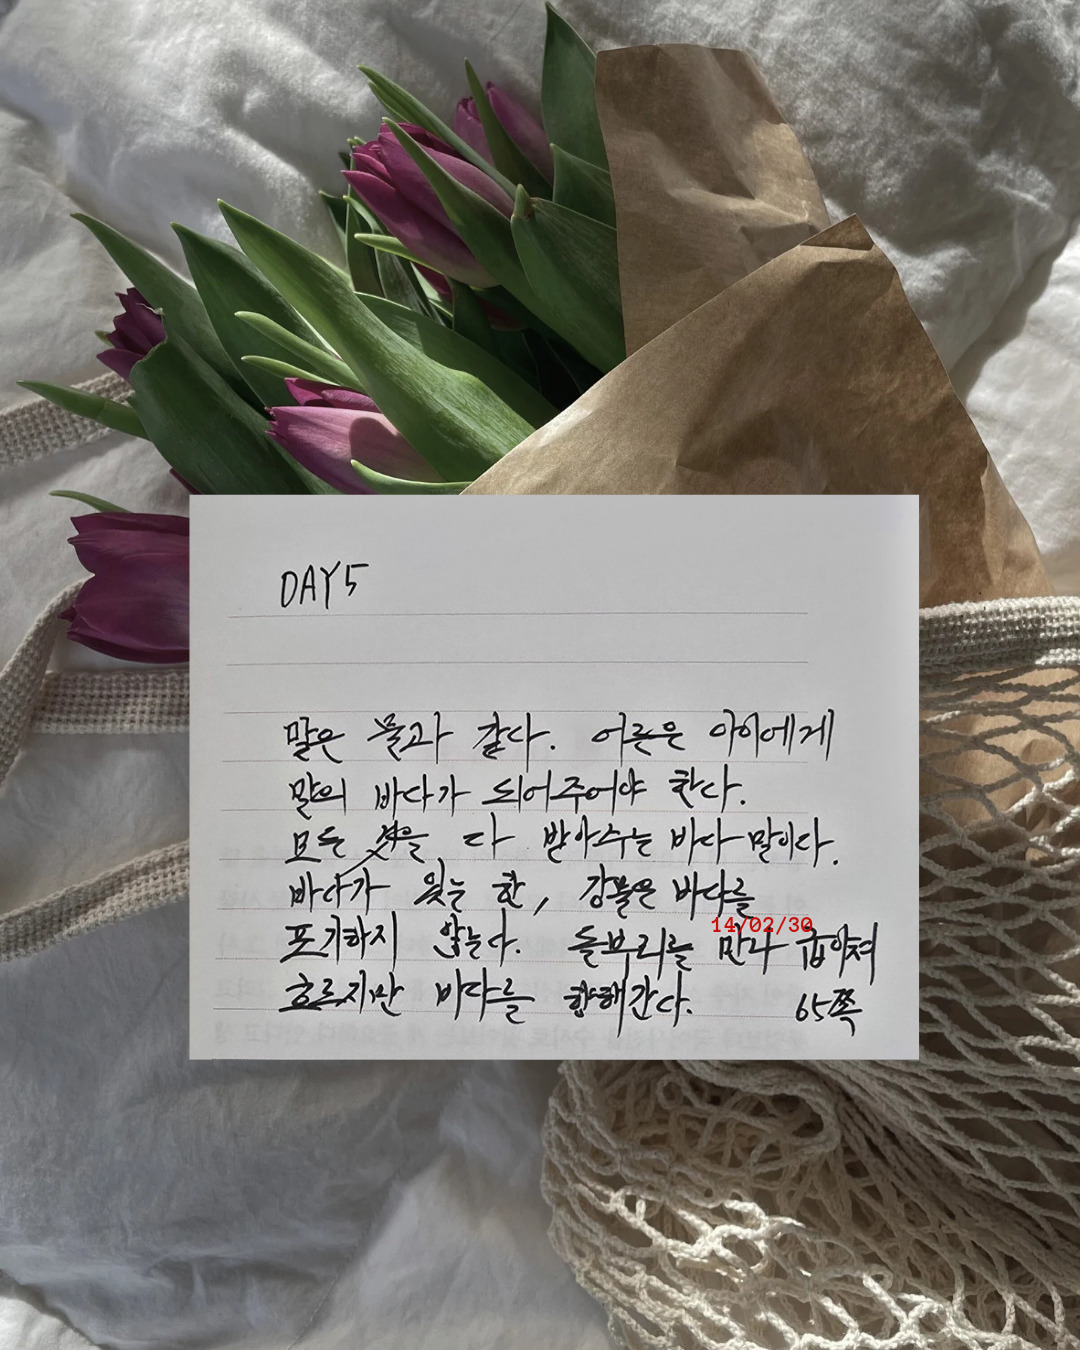 DAY5
말은 물과 같다. 어른은 아이에게
말의 바다가 되어주어야 한다.
모든 것을 다 받아주는 바다 말이다.
바다가 있는 한, 강물은 바다를
포기하지 않는다. 돌부리를 만나 굽이쳐
14/02/30
흐르지만 바다를 향해 간다. 65쪽